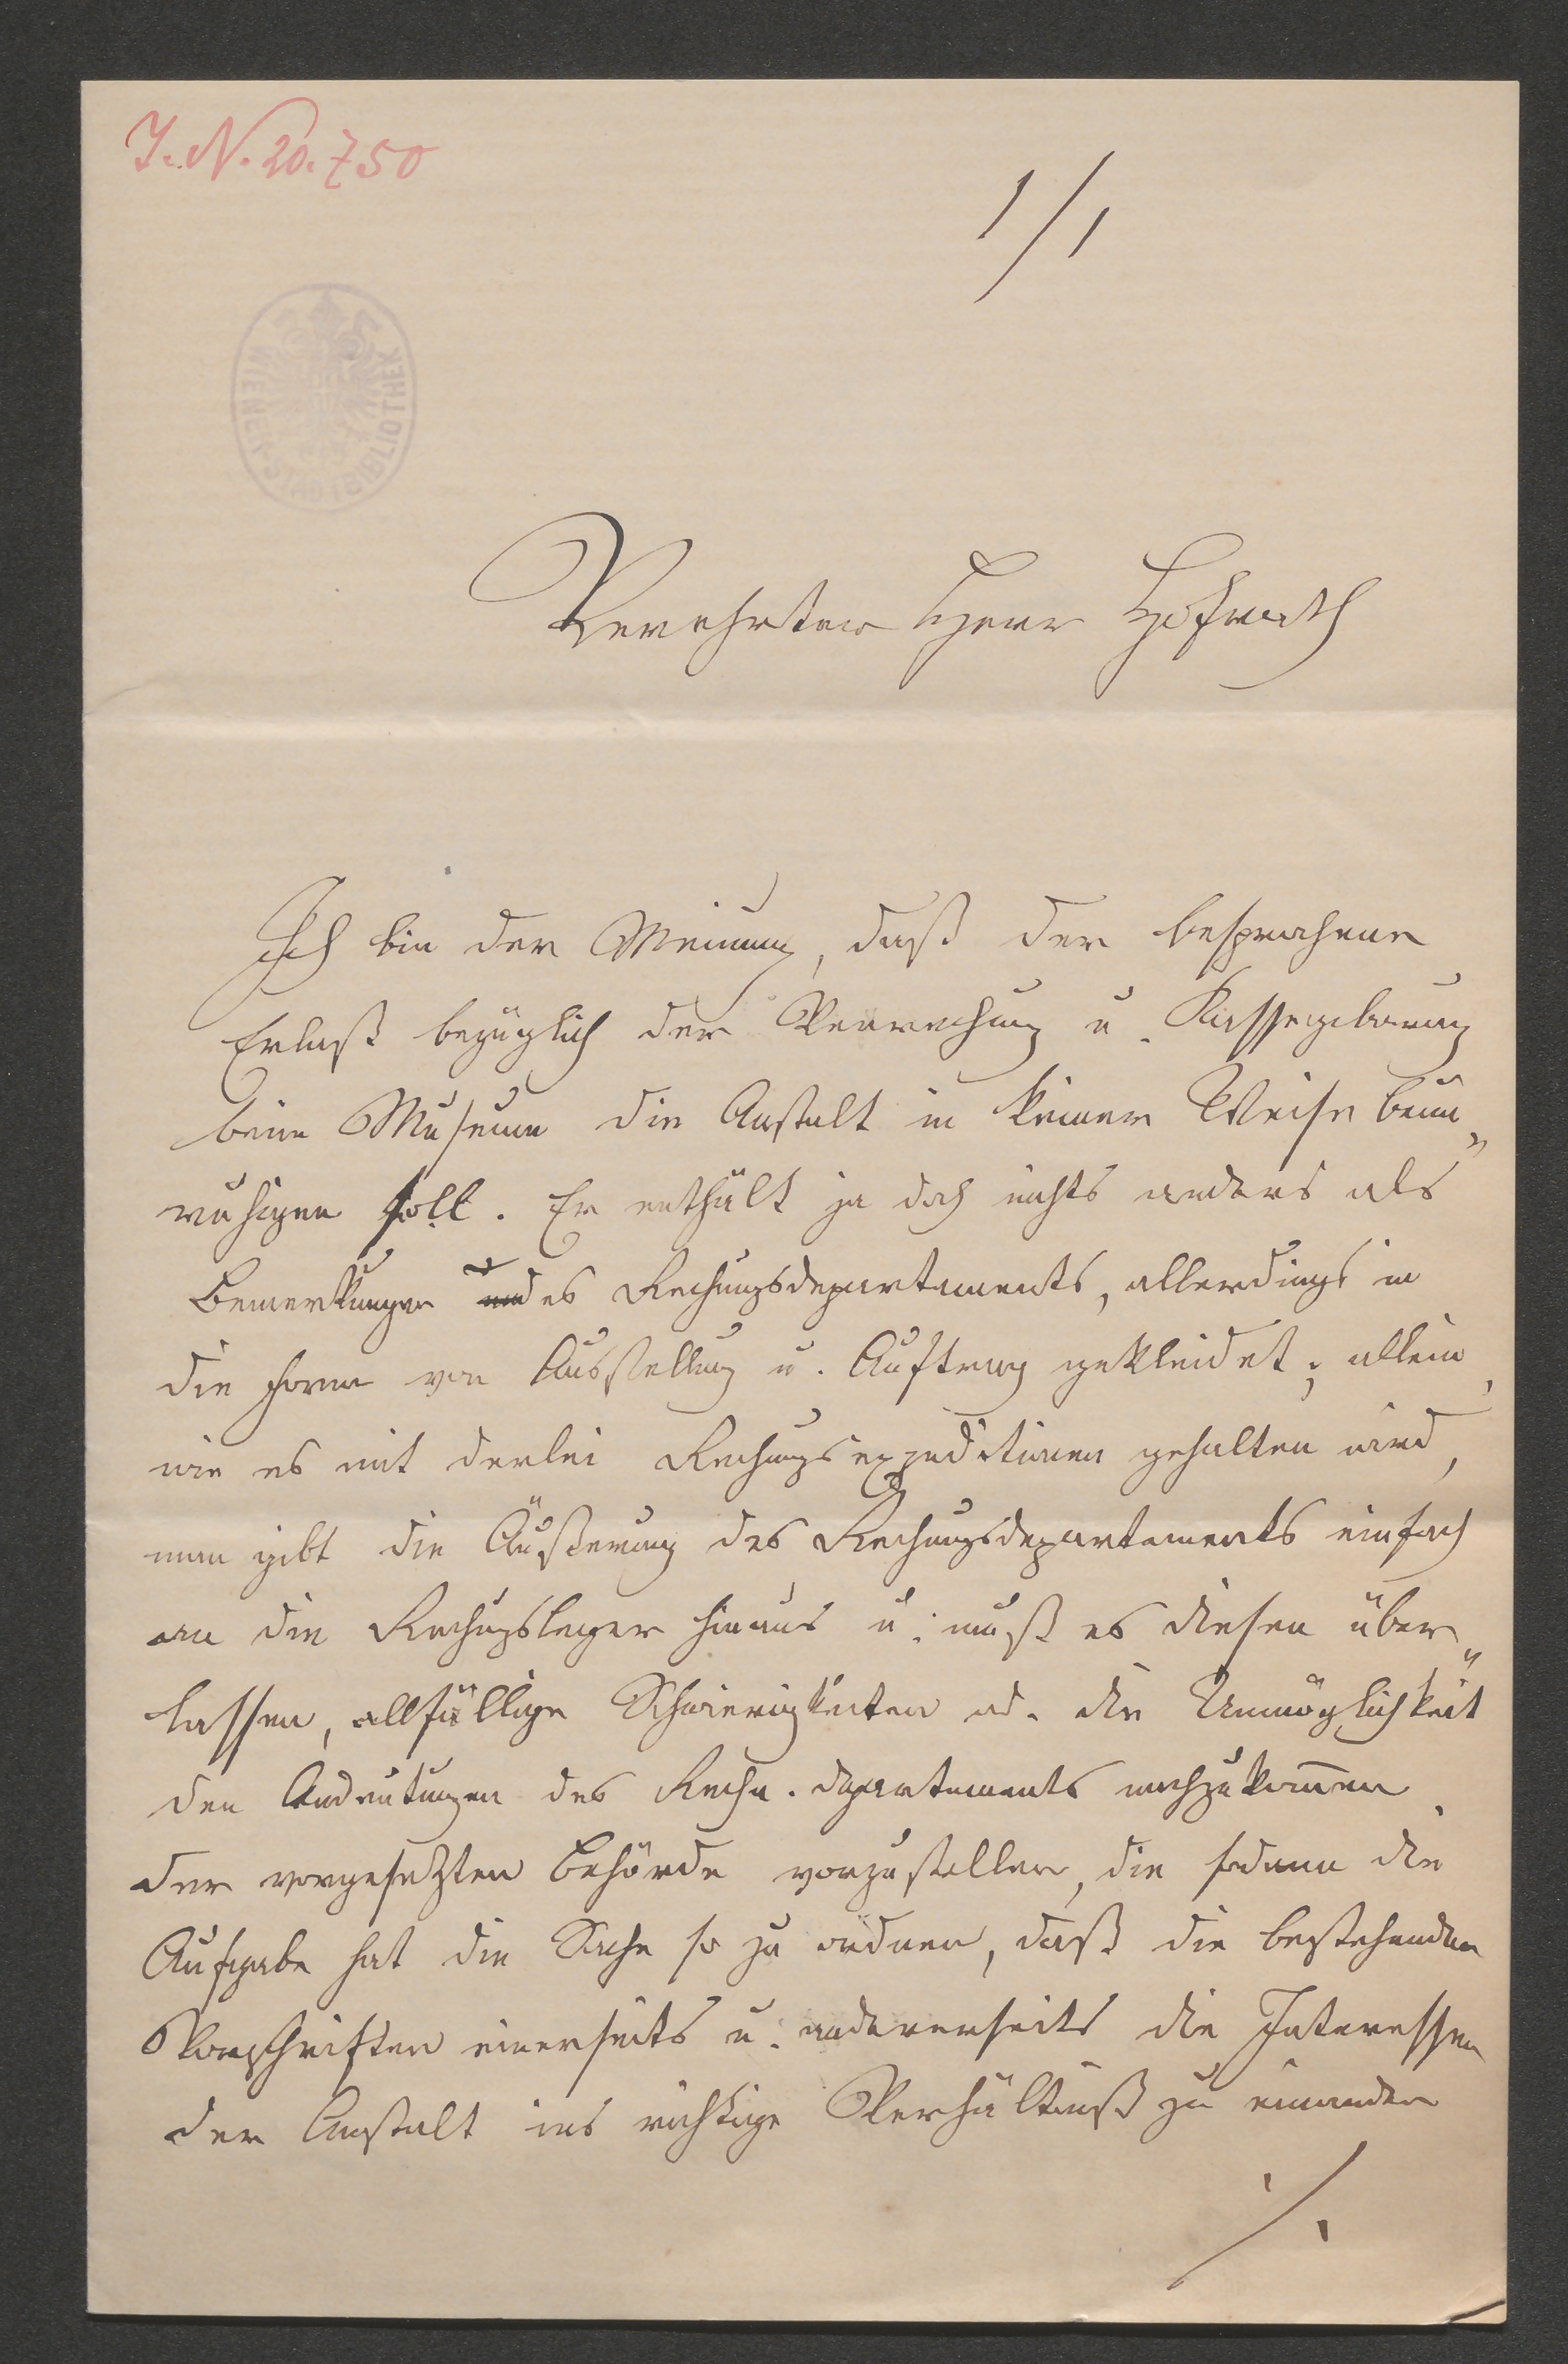 I. N. 20.750
1/1
WIENER STADTBIBLIOTHEK
Verehrter Herr Hofrath
Ich bin der Meinung, daß der besprochene
Erlaß bezüglich der Verrechnung u. Kassegebarung
beim Museum die Anstalt in keiner Weise beun„
ruhigen soll. Er enthält ja doch nichts anders als
Bemerkungen des Rechnungsdepartements, allerdings in
die Form von Ausstellung u. Auftrag gekleidet; allein,
wie es mit derlei Rechnungsexpeditionen gehalten wird,
man gibt die Äußerung des Rechnungsdepartements einfach
an die Rechnungsleger hinaus u. muß es diesen über„
lassen, allfällige Schwierigkeiten od. die Unmöglichkeit
den Andeutungen des Rechn. departements nachzukom̄en
der vorgesetzten Behörde vorzustellen, die sodann die
Aufgabe hat die Sache so zu ordnen, daß die bestehenden
Vorschriften einerseits u. andererseits die Interessen
der Anstalt ins richtige Verhältniß zu einander
./.